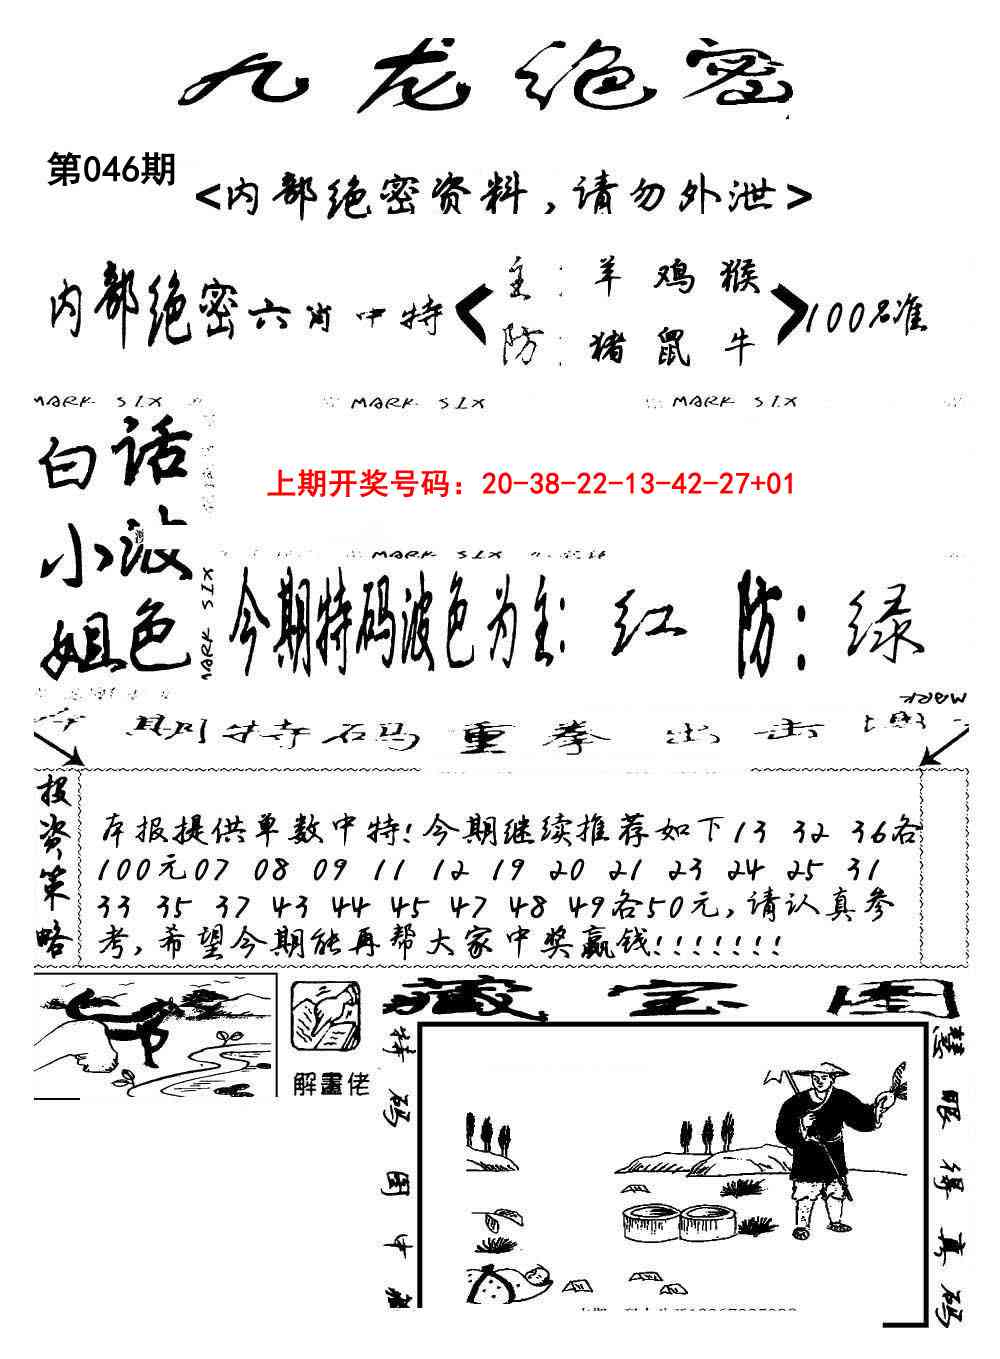 九龙绝密
第046期
<内部绝密资料，请勿外泄>
内部绝密六肖中特
主：羊 鸡 猴
防：猪 鼠 牛
100%准
MARK SIX MARK SIX MARK SIX
白小姐
话波色
上期开奖号码：20-38-22-13-42-27+01
MARK SIX
MARK SIX
今期特码波色为主：红 防：绿
MARK
期特码重拳出击
投资策略
本报提供单数中特!今期继续推荐如下13 32 36各
100元07 08 09 11 12 19 20 21 23 24 25 31
33 35 37 43 44 45 47 48 49各50元,请认真参
考,希望今期能再帮大家中奖赢钱!!!!!!!
解畫佬
藏宝图
特码图中
慧眼得真码